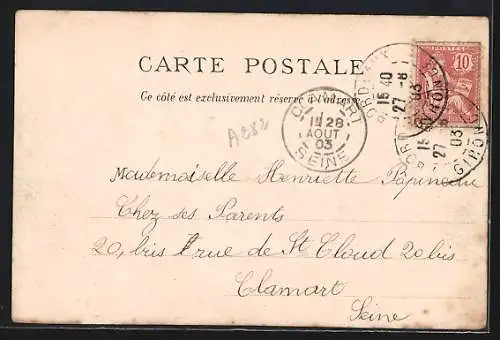 CARTE POSTALE
Ce côté est exclusivement réservé à l'adresse
POSTES
10
BORDEAUX
15 40
27 - 8
03
GIRONDE
BORD
15
27
03
GIRONDE
CLAMART
11 28
AOUT
03
SEINE
A282
Mademoiselle Henriette Papineau
Chez ses Parents
20, bis rue de St Cloud 20 bis
Clamart
Seine